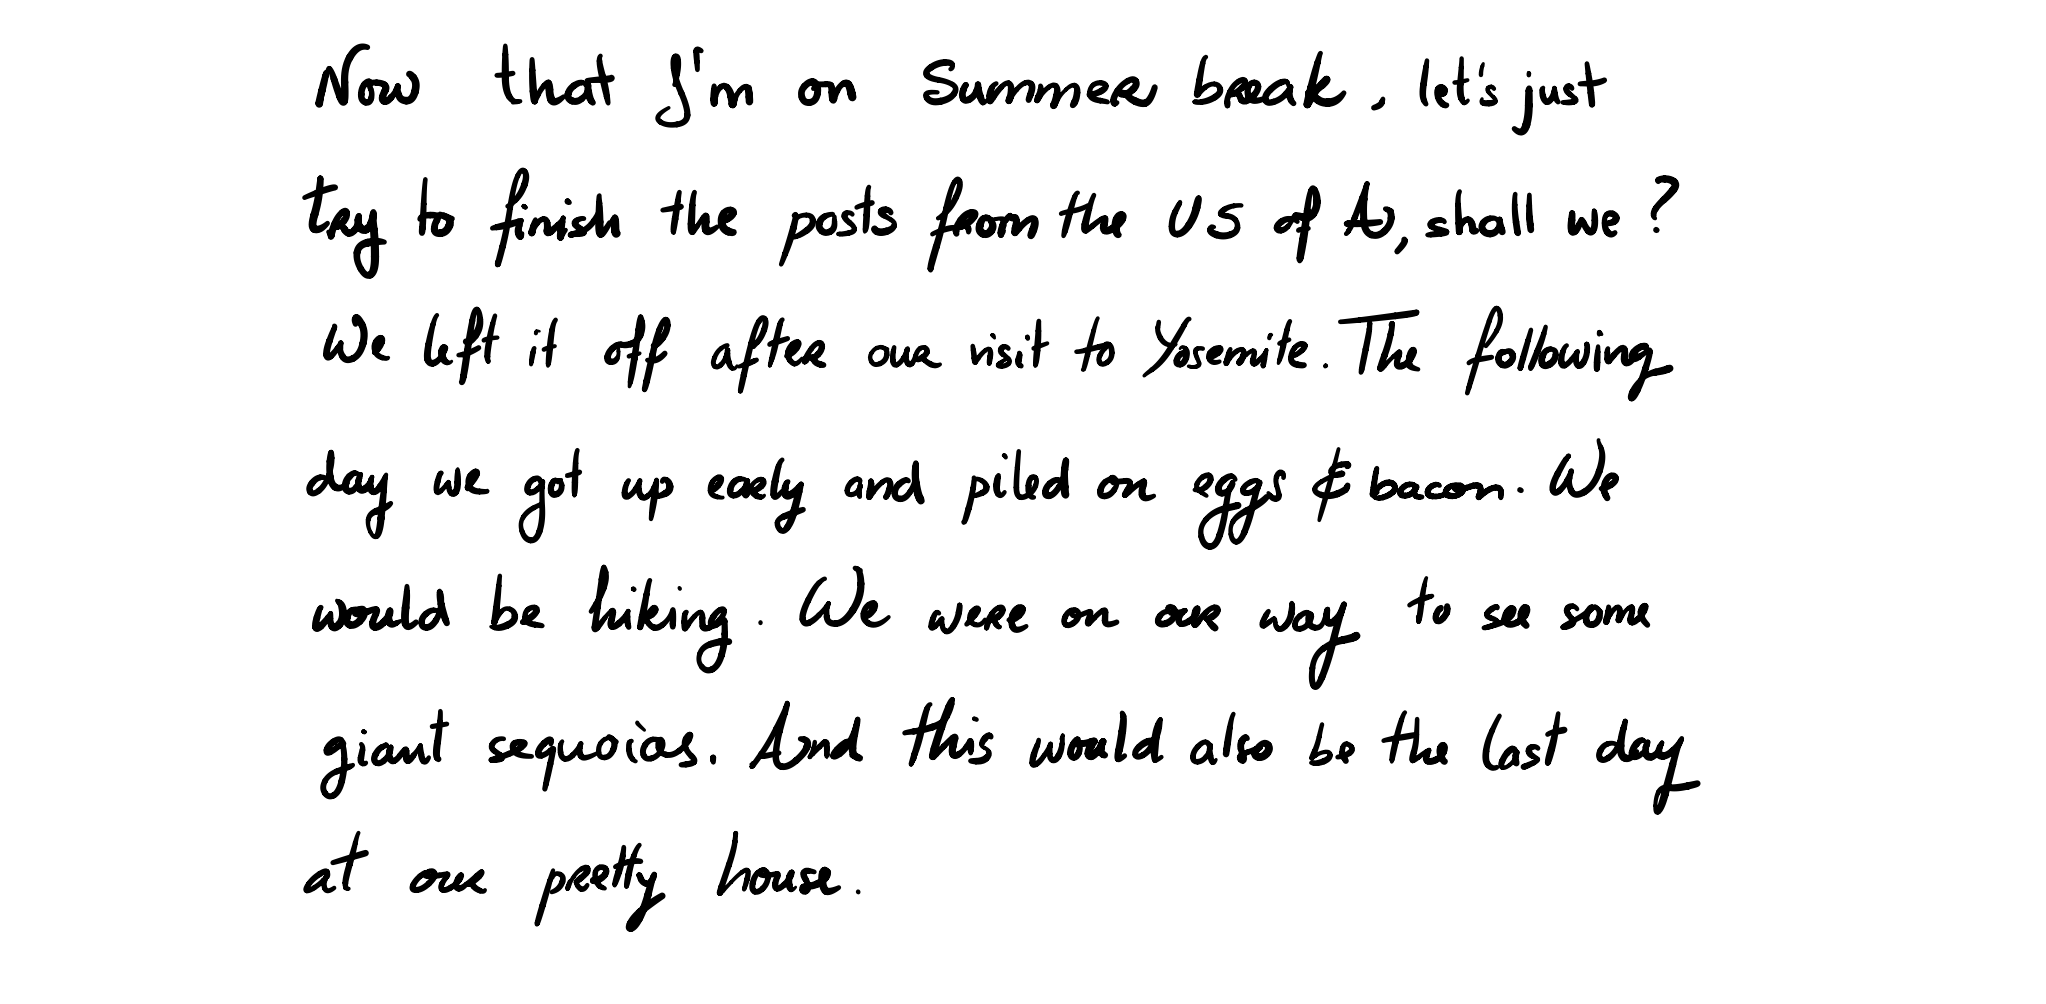 Now that I'm on Summer break, let's just
try to finish the posts from the US of A, shall we?
We left it off after our visit to Yosemite. The following
day we got up early and piled on eggs & bacon. We
would be hiking. We were on our way to see some
giant sequoias. And this would also be the last day
at our pretty house.